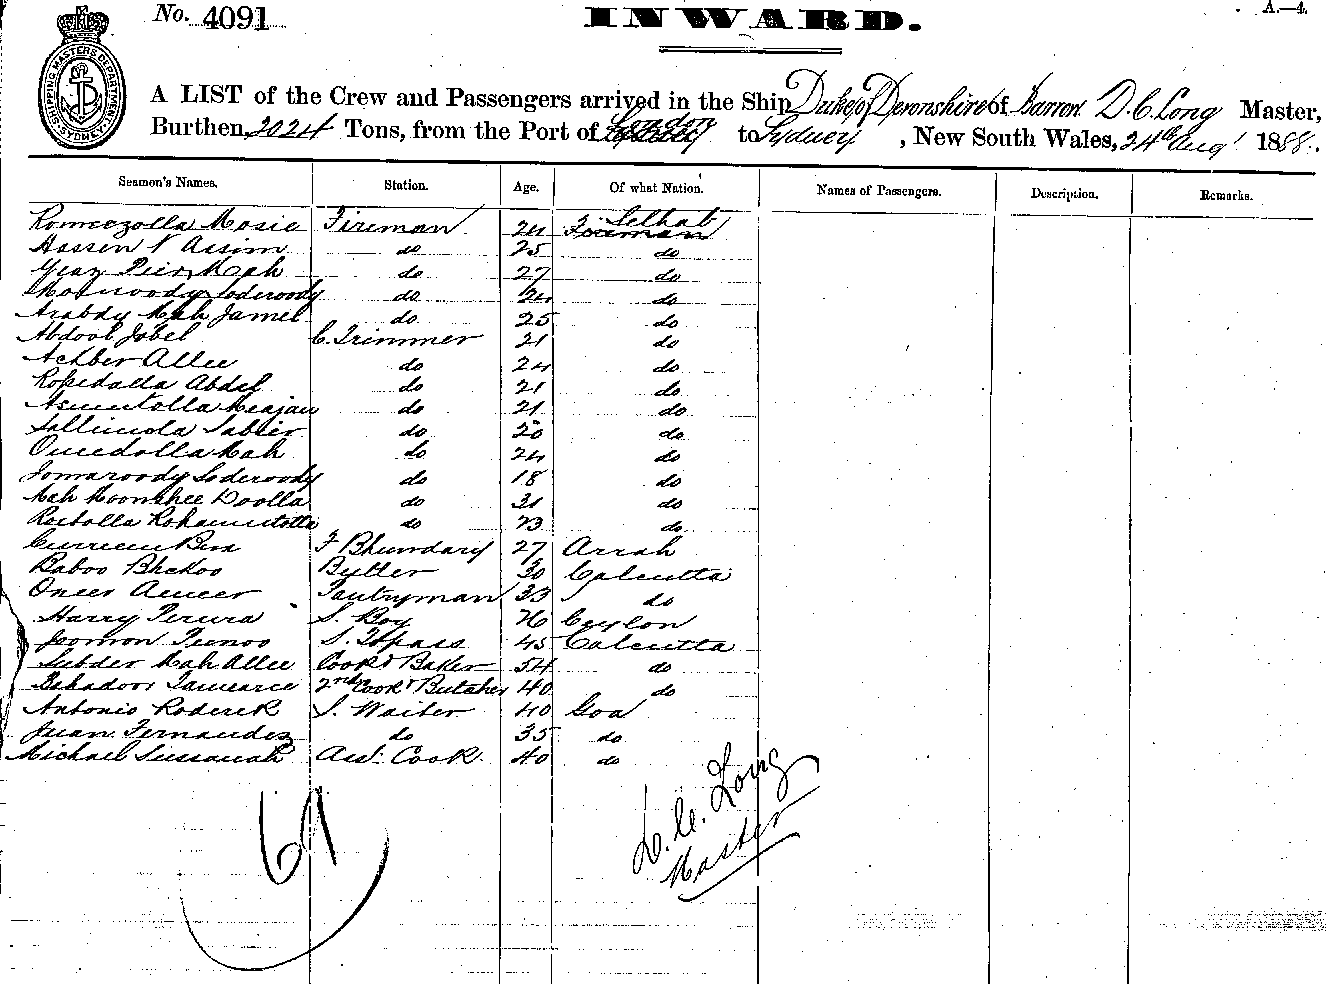 No. 4091 INWARD. A.—4.
SHIPPING MASTERS DEPARTMENT SYDNEY
A LIST of the Crew and Passengers arrived in the Ship Duke of Devonshire of Barrow D. C. Long Master,
Burthen, 2024 Tons, from the Port of London to Sydney, New South Wales, 24th Aug 1888.
Seamen's Names. Station. Age. Of what Nation. Names of Passengers. Description. Remarks.
Romeezolla Mosie Fireman 24 Selhat
Hassen Assim do 25 do
Mah do 27 do
Soderoody do 24 do
Arabdy Mah Jamel do 25 do
Abdool Jobel C. Trimmer 21 do
Achber Allee do 24 do
Abdel do 21 do
Asmutolla Meajan do 21 do
Sabier do 20 do
Omedolla Mah do 24 do
Jomaroody Soderoody do 18 do
Mah Moonshee Doolla do 21 do
do 23 do
Curreem Bux F Bhundary 27 Arrah
Baboo Bhekoo Butler 30 Calcutta
Omeer Ameer Pantryman 33 do
Harry Perura S. Boy Ceylon
Joomon Peenoo S. Topass 45 Calcutta
Subder Mah Allee Cook & Baker 54 do
Bahadoor 2nd Cook & Butcher 40 do
Antonio Roderek S. Waiter 40 Goa
Juan Fernandez do 35 do
Michael Sussanah Asst. Cook 40 do
D. C. Long
Master
61